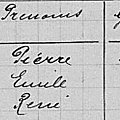 Prénoms
Pierre
Emile
René